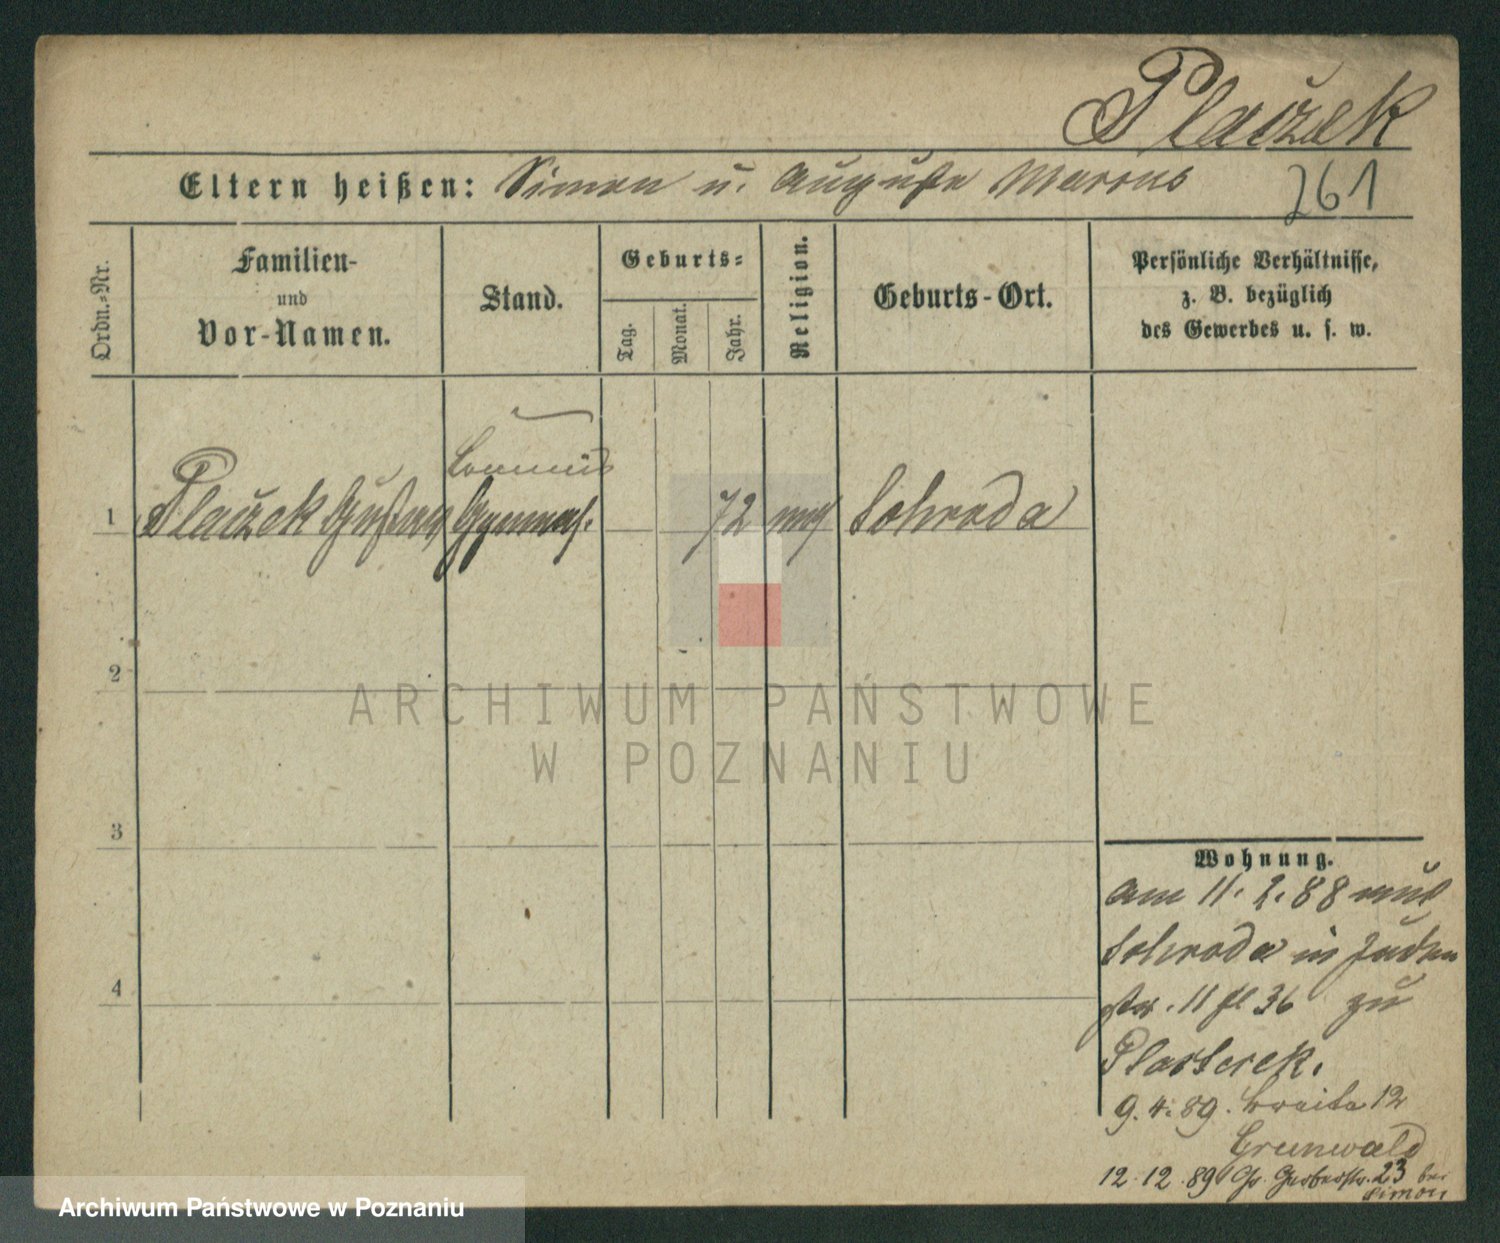 Placzek
Eltern heißen: Simon u. Auguste Marcus
261
Ordn.-Nr.
Familien-
und
Vor-Namen.
Stand.
Geburts-
Tag.
Monat.
Jahr.
Religion.
Geburts-Ort.
Persönliche Verhältnisse,
z. B. bezüglich
des Gewerbes u. s. w.
Commis
1 Placzek Gustav Gymnas. 72 mos Schroda
2
3
4
Wohnung.
am 11. 2. 88 aus
Schroda in Juden
str. 11 36 zu
9. 4. 89. Breite 12
Grunwald
12. 12. 89 Gr. Gerberstr. 23 bei
Simon
ARCHIWUM PAŃSTWOWE
W POZNANIU
Archiwum Państwowe w Poznaniu